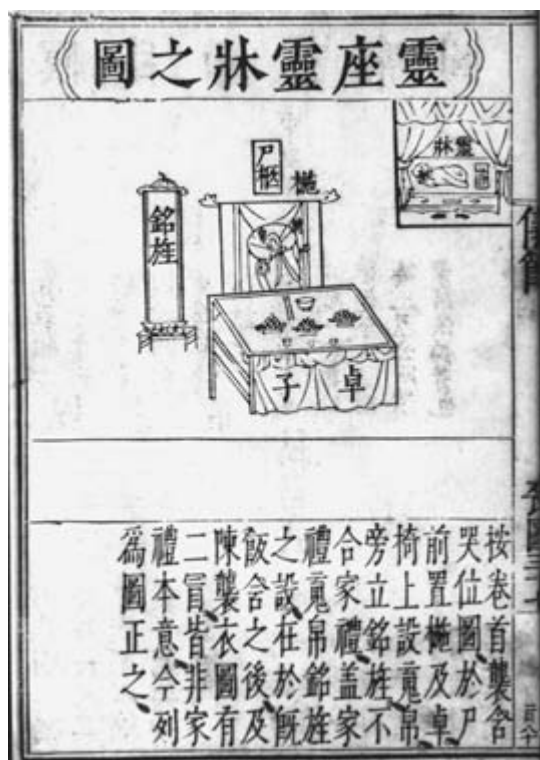 靈座靈牀之圖
靈牀
尸柩
椸
銘旌
卓子
按卷首襲含
哭位圖於尸
前置椸及卓
椅上設䰟帛
旁立銘旌不
合家禮盖家
禮䰟帛銘旌
之設在於旣
飯含之後及
陳襲衣圖有
二冒皆非家
禮本意今列
爲圖正之